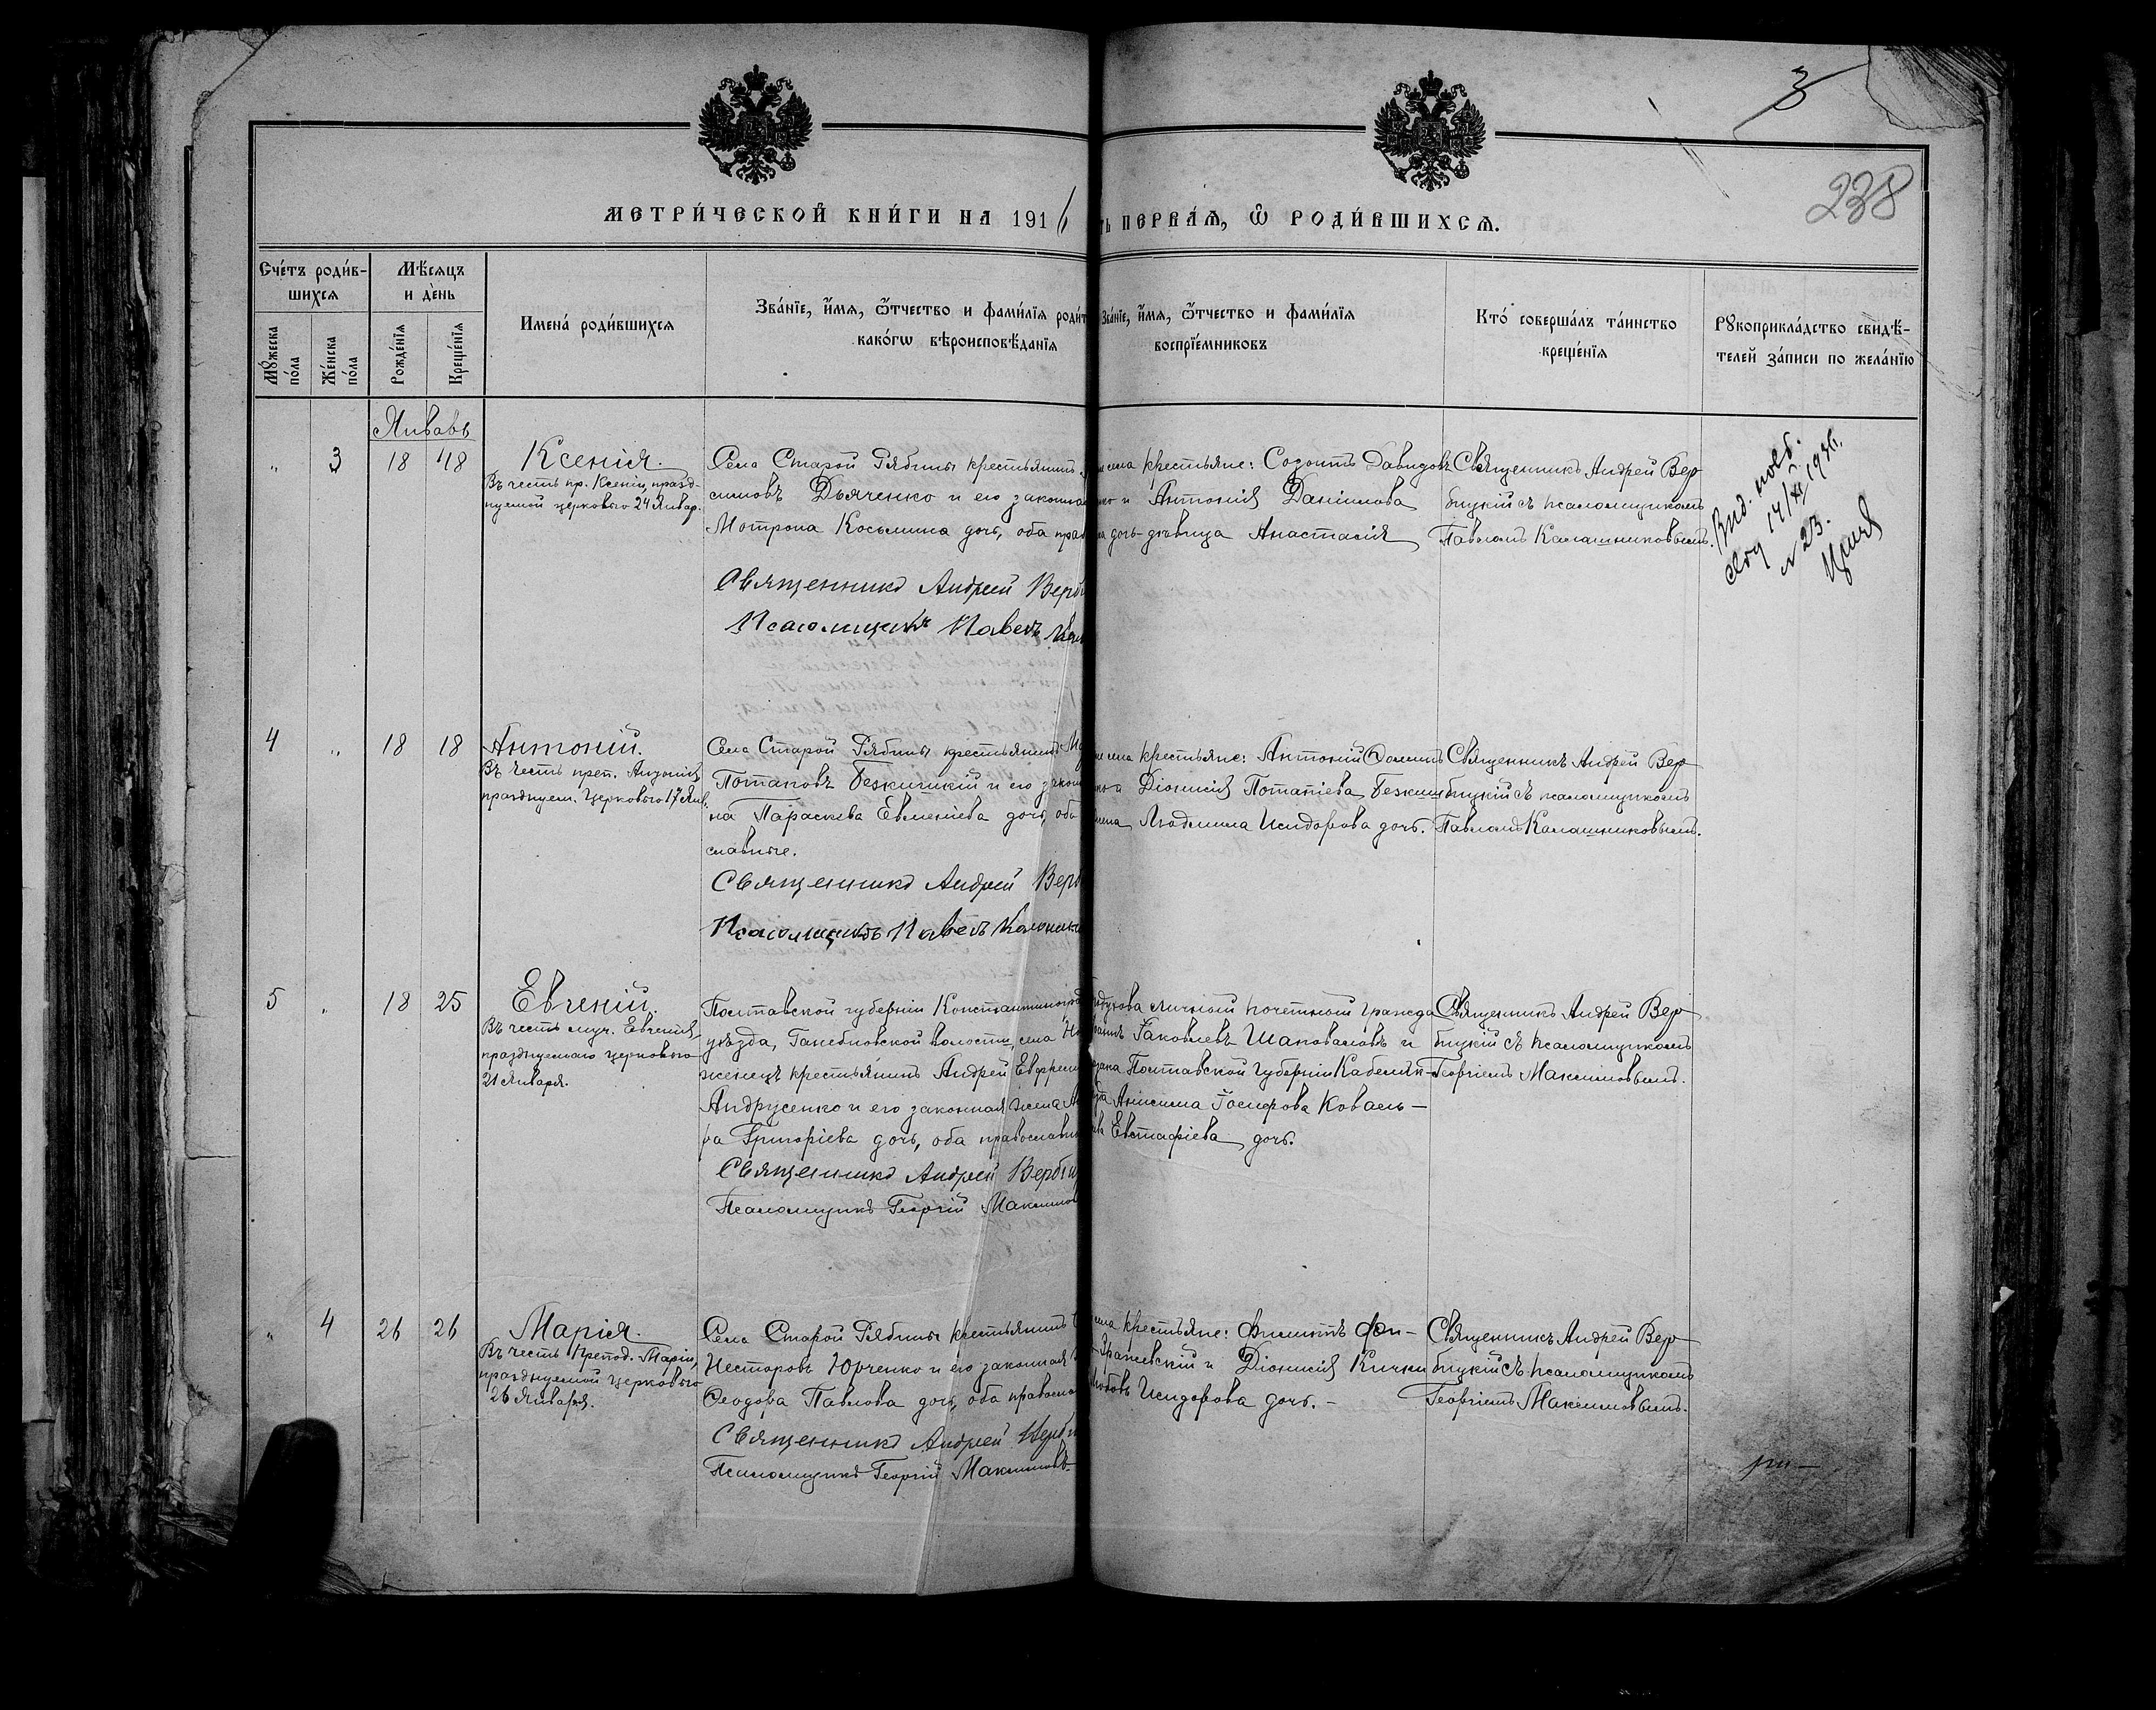 3
238
МЕТРИ́ЧЕСКОЙ КНИ́ГИ НА 1916
ПЕРВА́Ѧ, Ѿ РОДИ́ВШИХСѦ.
Сче́тъ роди́в-
шихсѧ
Мѣ́сѧцъ
и де́нь
Мꙋ́жеска
по́ла
Же́нска
по́ла
Рожде́нїѧ
Креще́нїѧ
Имена́ роди́вшихсѧ
Зва́нїе, и́мѧ, ѻ҆́тчество и фами́лїѧ роди́т
како́гѡ вѣроисповѣ́данїѧ
Зва́нїе, и́мѧ, ѻ҆́тчество и фами́лїѧ
воспрїе́мниковъ
Кто́ соверша́лъ та́инство
креще́нїѧ
Рꙋкоприкла́дство свидѣ́-
телей за́писи по жела́нїю
Январь
" 3 18 18
Ксенія.
Въ честь пр. Ксеніи, празд-
нуемой церковью 24 Январ.
Села Старой Рябины крестьянинъ
симовъ Дьяченко и его законная
Мотрона Косьмина дочь, оба прав
Священникъ Андрей Верби
Псаломщикъ Павелъ
села крестьяне: Созонтъ Давидовъ
и Антонія Даніилова
дочь-дѣвица Анастасія
Священникъ Андрей Вер
бицкій съ псаломщикомъ
Павломъ Калашниковымъ.
4 " 18 18
Антоній.
Въ честь преп. Антонія,
празднуем. Церковью 17 Янв.
Села Старой Рябины крестьянинъ
Потаповъ Безкишкій и его закон
на Параскева Евменіева дочь, оба
славные.
Священникъ Андрей Верб
Псаломщикъ Павелъ Калашни
села крестьяне: Антоній
Діонисія Потапіева Безкиш
Людмила Исидорова дочь.
Священникъ Андрей Вер
бицкій съ псаломщикомъ
Павломъ Калашниковымъ.
5 " 18 25
Евгеній.
Въ честь муч. Евгенія,
празднуемаго церковью
21 Января.
Полтавской губерніи Константиноград
уѣзда, Ганебновской волости, села
женецъ крестьянинъ Андрей Евфрем
Андрусенко и его законная жена
ра Григоріева дочь, оба православн
Священникъ Андрей Вербиц
Псаломщикъ Георгій Максимов
личный почетный гражда
Іаковлевъ Шаповаловъ и
Полтавской губерніи Кабеляк-
Анисима Іосифова Коваль-
Евстафіева дочь.
Священникъ Андрей Вер
бицкій съ псаломщикомъ
Георгіемъ Максимовымъ.
" 4 26 26
Марія.
Въ честь Препод. Маріи,
празднуемой церковью
26 Января.
Села Старой Рябины крестьянинъ
Несторовъ Юрченко и его законная
Ѳеодора Павлова дочь, оба правосла
Священникъ Андрей Верби
Псаломщикъ Георгій Максимовъ
села крестьяне: Филиппъ
и Діонисія Кички
Любовь Исидорова дочь.-
Священникъ Андрей Вер
бицкій съ псаломщикомъ
Георгіемъ Максимовымъ.